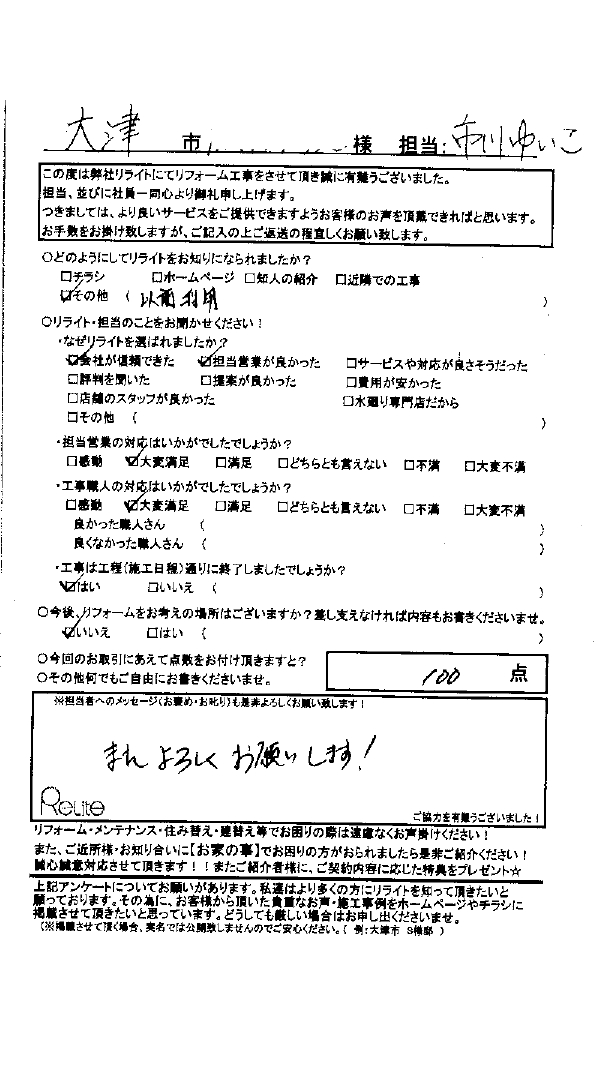 大津 市 様 担当: 市川ゆいこ
この度は弊社リライトにてリフォーム工事をさせて頂き誠に有難うございました。
担当、並びに社員一同心より御礼申し上げます。
つきましては、より良いサービスをご提供できますようお客様のお声を頂戴できればと思います。
お手数をお掛け致しますが、ご記入の上ご返送の程宜しくお願い致します。
○どのようにしてリライトをお知りになられましたか？
□チラシ □ホームページ □知人の紹介 □近隣での工事
☑その他 （ 以前利用 ）
○リライト・担当のことをお聞かせください！
・なぜリライトを選ばれましたか？
☑会社が信頼できた ☑担当営業が良かった □サービスや対応が良さそうだった
□評判を聞いた □提案が良かった □費用が安かった
□店舗のスタッフが良かった □水廻り専門店だから
□その他 （ ）
・担当営業の対応はいかがでしたでしょうか？
□感動 ☑大変満足 □満足 □どちらとも言えない □不満 □大変不満
・工事職人の対応はいかがでしたでしょうか？
□感動 ☑大変満足 □満足 □どちらとも言えない □不満 □大変不満
良かった職人さん （ ）
良くなかった職人さん （ ）
・工事は工程（施工日程）通りに終了しましたでしょうか？
☑はい □いいえ （ ）
○今後、リフォームをお考えの場所はございますか？差し支えなければ内容もお書きくださいませ。
☑いいえ □はい （ ）
○今回のお取引にあえて点数をお付け頂きますと？
100 点
○その他何でもご自由にお書きくださいませ。
※担当者へのメッセージ（お褒め・お叱り）も是非よろしくお願い致します！
またよろしくお願いします！
Relite
ご協力を有難うございました！
リフォーム・メンテナンス・住み替え・建替え等でお困りの際は遠慮なくお声掛けください！
また、ご近所様・お知り合いに【お家の事】でお困りの方がおられましたら是非ご紹介ください！
誠心誠意対応させて頂きます！！またご紹介者様に、ご契約内容に応じた特典をプレゼント☆
上記アンケートについてお願いがあります。私達はより多くの方にリライトを知って頂きたいと
願っております。その為に、お客様から頂いた貴重なお声・施工事例をホームページやチラシに
掲載させて頂きたいと思っています。どうしても厳しい場合はお申し出くださいませ。
（※掲載させて頂く場合、実名では公開致しませんのでご安心ください。（ 例：大津市 S様邸 ）